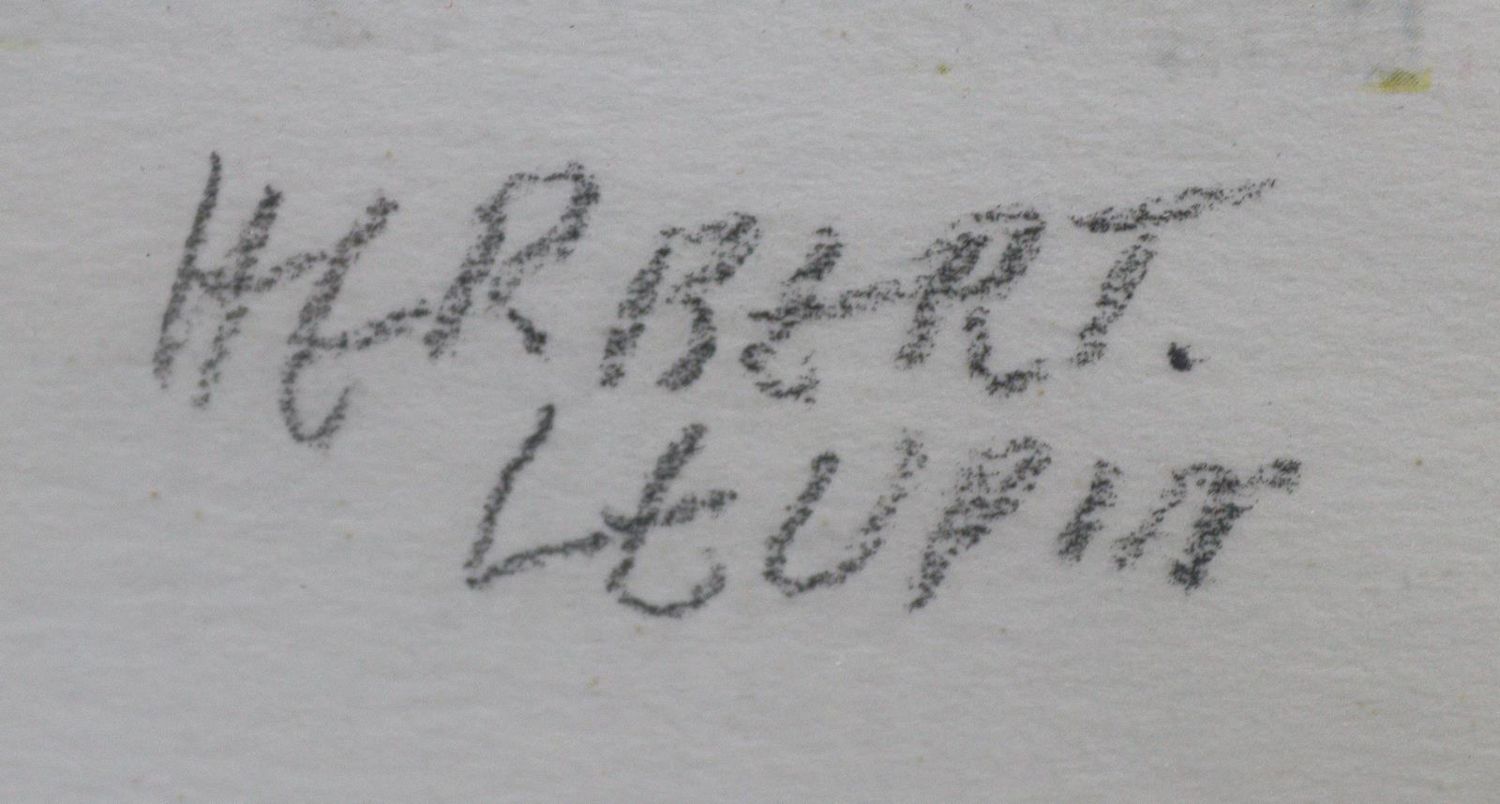 HERBERT.
LEUPIN